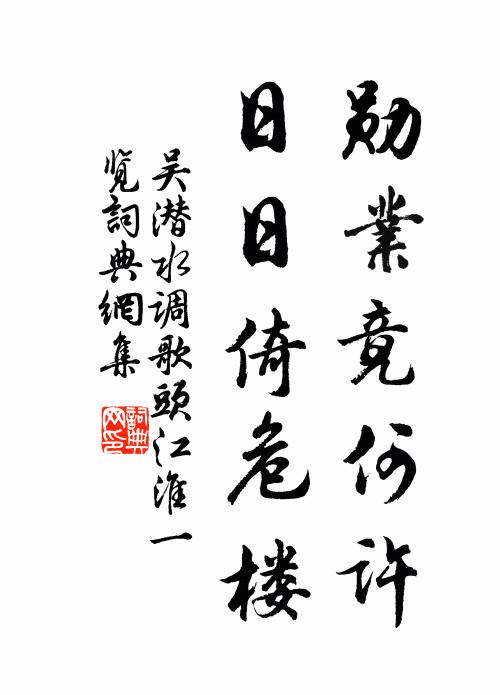 勋业竟何许
日日倚危楼
吴潜水调歌頭江淮一
览詞典網集
詞典
网印